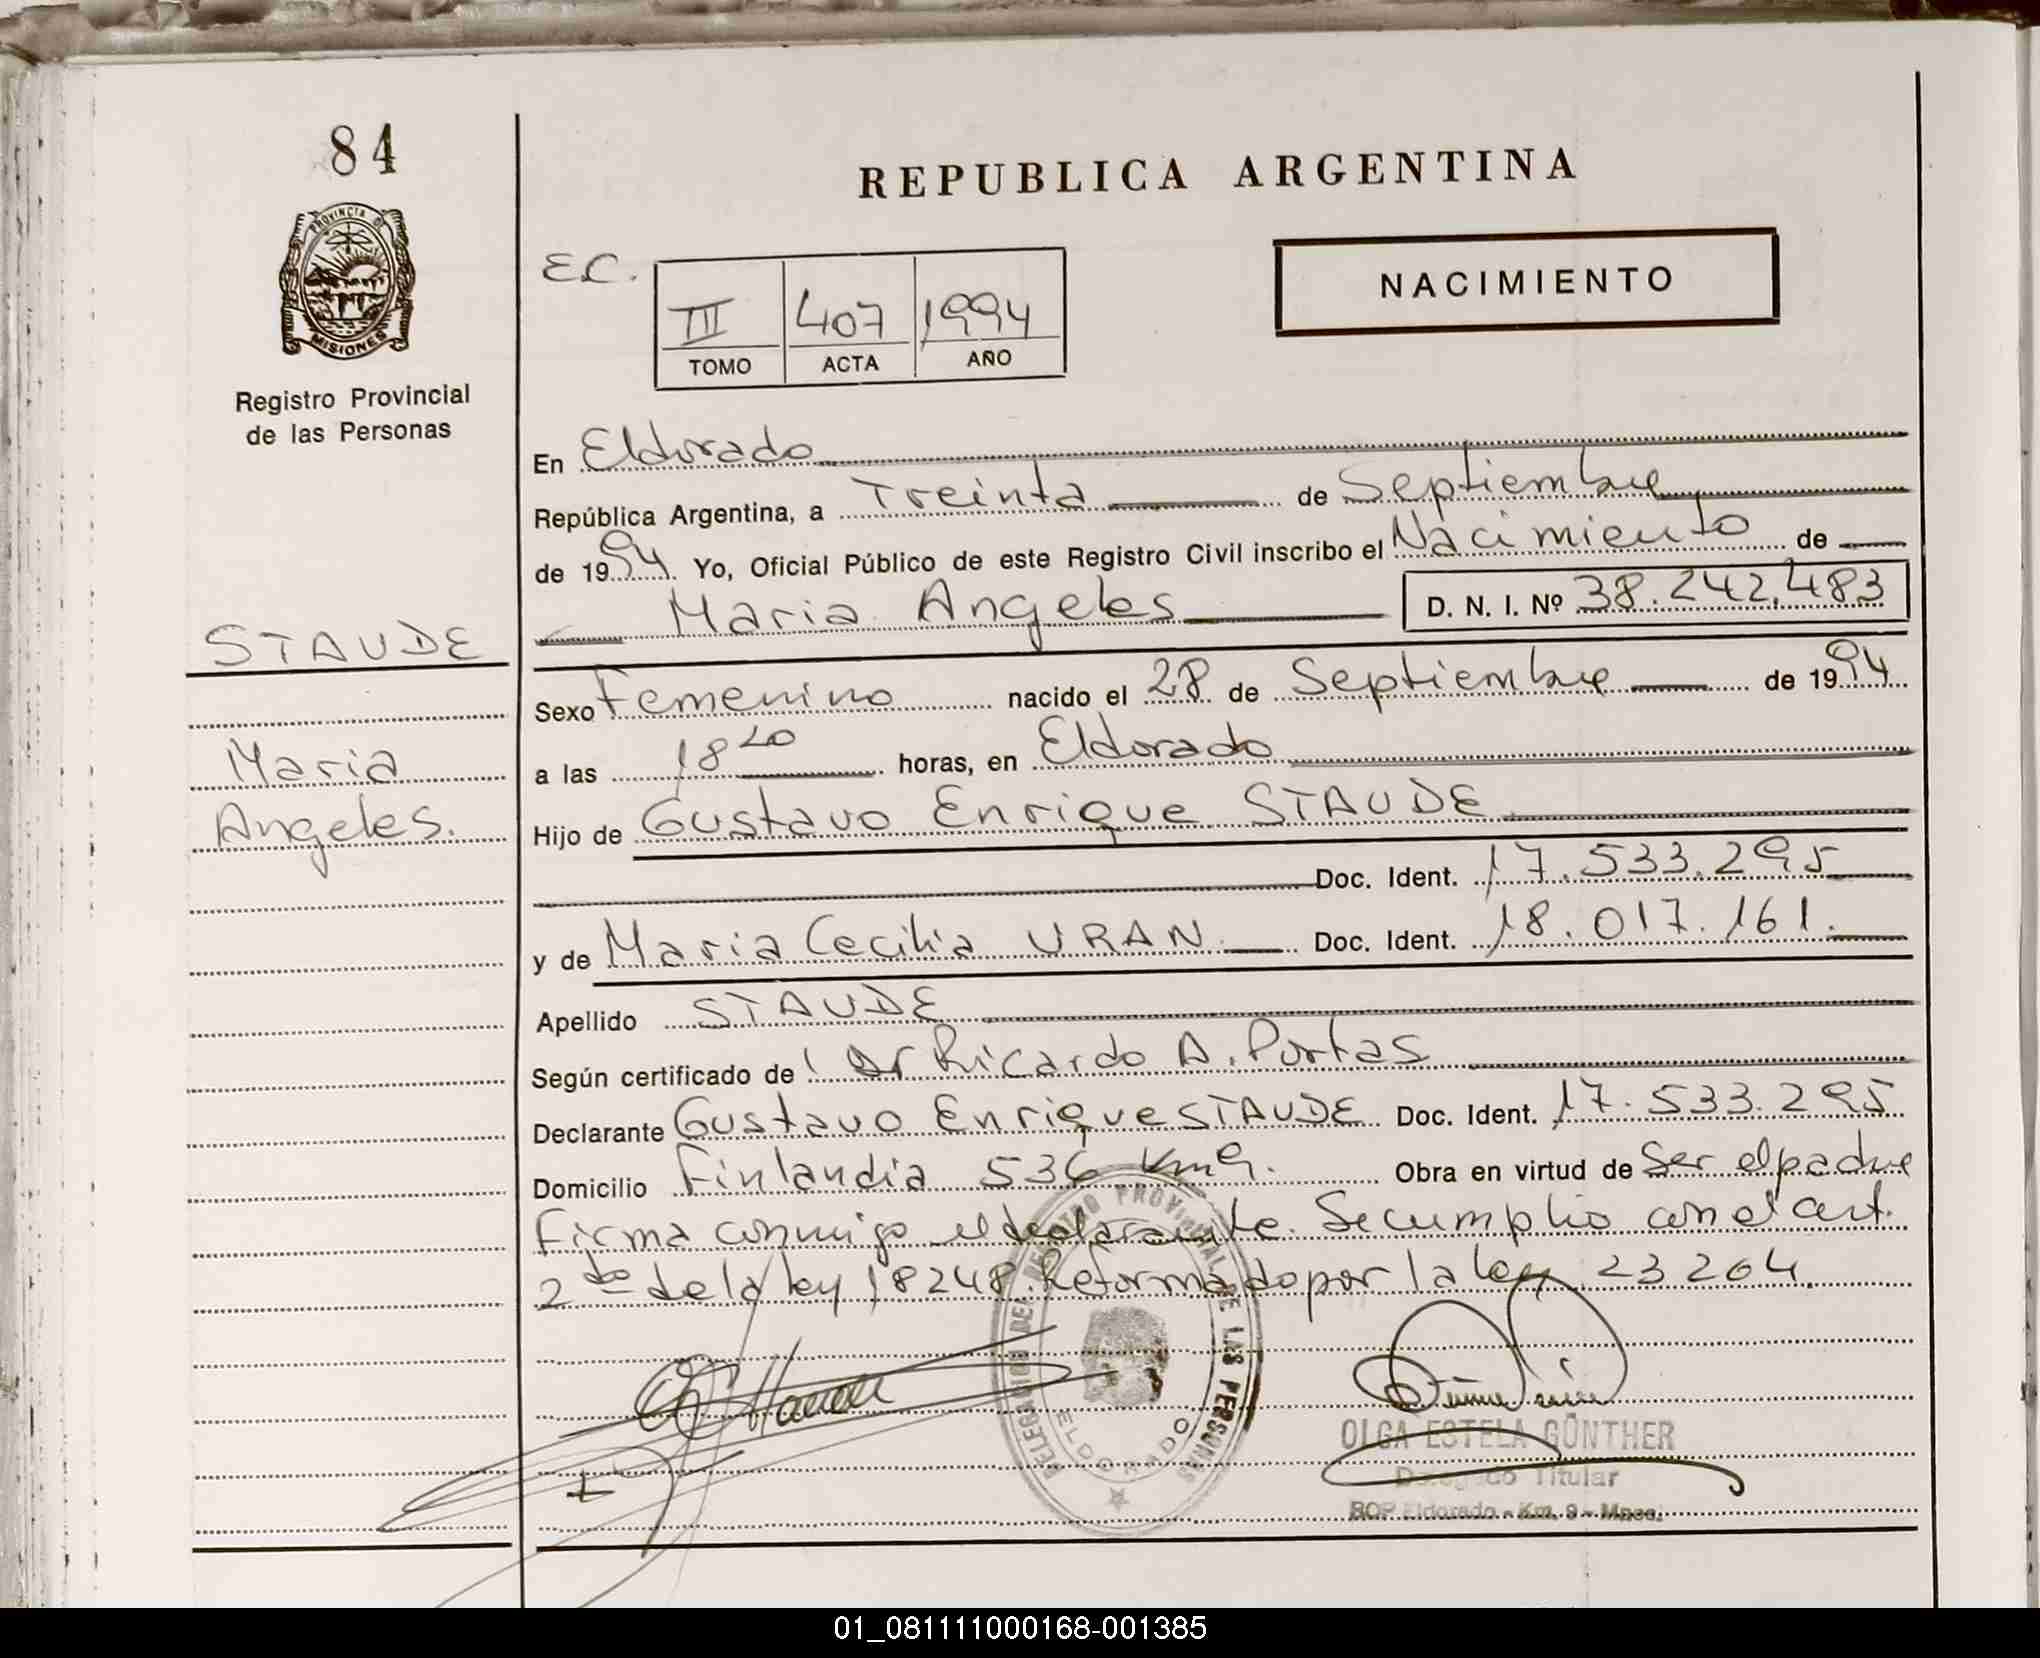 84
REPUBLICA ARGENTINA
PROVINCIA DE
MISIONES
Registro Provincial
de las Personas
E.C.
III 407 1994
TOMO ACTA AÑO
NACIMIENTO
En Eldorado
República Argentina, a Treinta de Septiembre
de 1994 Yo, Oficial Público de este Registro Civil inscribo el Nacimiento de
Maria Angeles D. N. I. Nº 38.242.483
STAUDE
Maria
Angeles.
Sexo Femenino nacido el 28 de Septiembre de 1994
a las 18 20 horas, en Eldorado
Hijo de Gustavo Enrique STAUDE
Doc. Ident. 17.533.295
y de Maria Cecilia URAN Doc. Ident. 18.017.161.
Apellido STAUDE
Según certificado de Dr Ricardo A. Portas
Declarante Gustavo Enrique STAUDE Doc. Ident. 17.533.295
Domicilio Finlandia 536 Km 9. Obra en virtud de Ser el padre
Firma conmigo el declarante. Se cumplio con el art.
2do de la ley 18248. Reformado por la ley 23264.
DELEGACION DEL REGISTRO PROVINCIAL DE LAS PERSONAS
ELDORADO
OLGA ESTELA GÜNTHER
Delegado Titular
Eldorado - Km. 9 - Mnes.
01_081111000168-001385